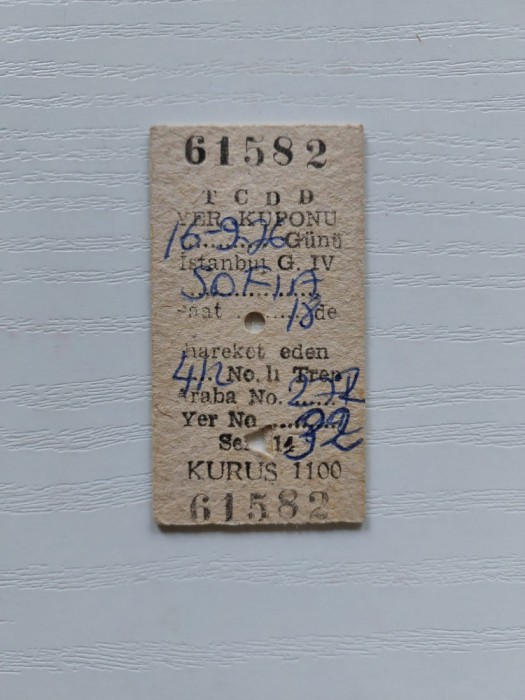 61582
T C D D
YER KUPONU
16-9-76 Günü
İstanbul G. IV
SOFIA
Saat ........ 18 de
hareket eden
No. lı Tren
Araba No.
Yer No ........ 32
14
KURUS 1100
61582